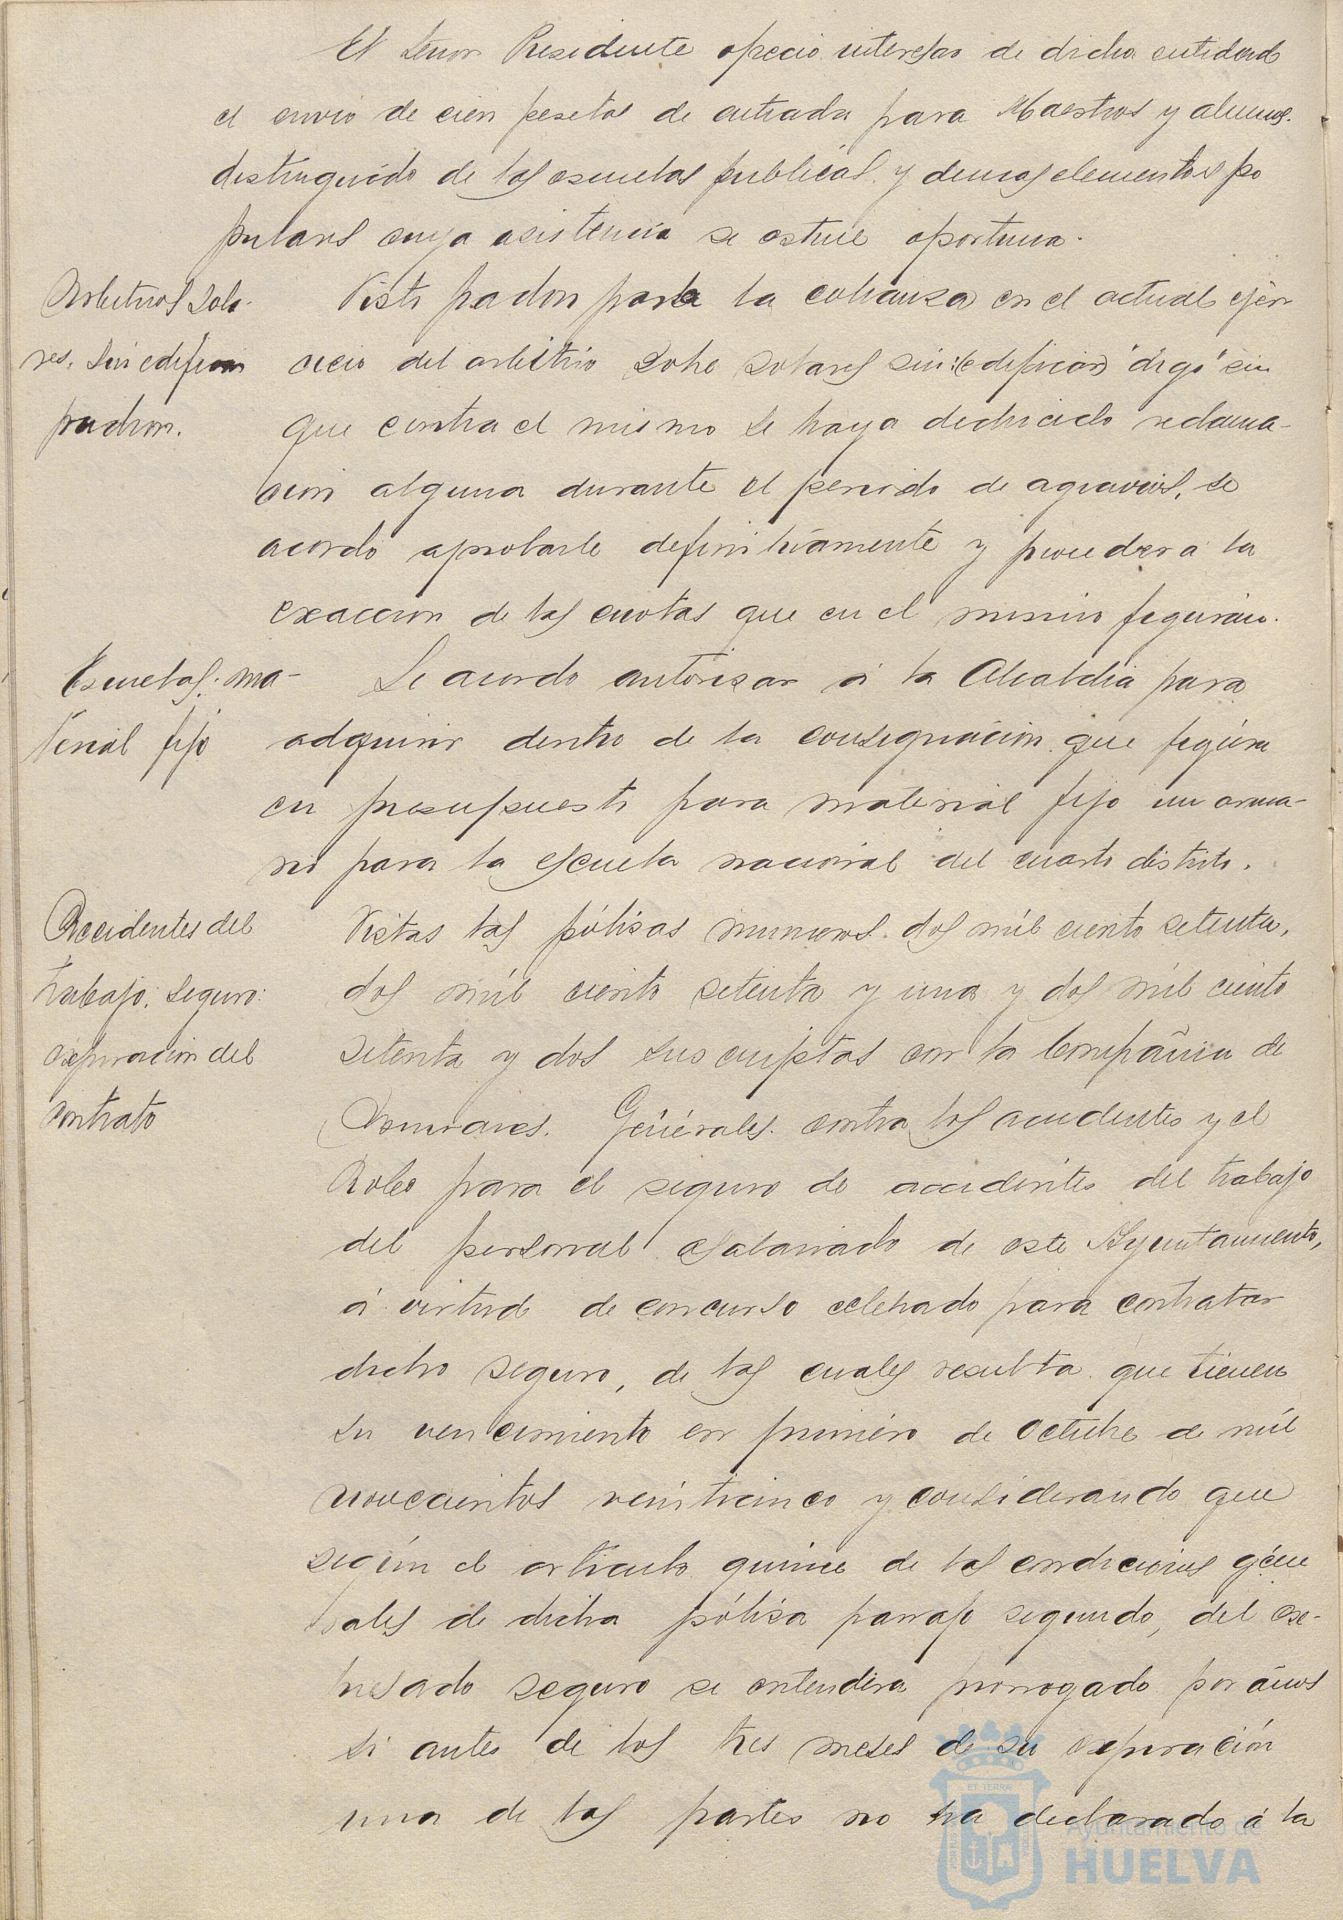 El Señor Presidente ofreció interesar de dicha entidad
el envio de cien pesetas de entrada para Maestros y alumnos
distinguido de las escuelas publicas y demas elementos po
pulares cuya asistencia se estime oportuna.
Arbitrios Sola-
res. Sin edificar
padron.
Visto padron para la cobranza en el actual ejer
cicio del arbitrio sobre solares sin edificar "digo" sin
que contra el mismo se haya deducido reclama-
cion alguna durante el periodo de agravios, se
acordó aprobarle definitivamente y proceder a la
exaccion de las cuotas que en el mismo figuran.
Escuelas: ma-
terial fijo
Se acordo autorizar á la Alcaldia para
adquirir dentro de la consignacion que figura
en presupuesto para material fijo un arma-
rio para la escuela nacional del cuarto distrito.
Accidentes del
trabajo. Seguro:
expiracion del
contrato
Vistas las pólizas numeros dos mil ciento setenta,
dos mil ciento setenta y una y dos mil ciento
setenta y dos suscriptas con la Compañia de
Generales contra los accidentes y el
Robo para el seguro de accidentes del trabajo
del personal asalariado de este Ayuntamiento,
á virtud de concurso celebrado para contratar
dicho seguro, de las cuales resulta que tienen
su vencimiento en primero de Octubre de mil
novecientos veinticinco y considerando que
según el articulo quince de las condiciones gene
rales de dicha póliza parrafo segundo, del ex-
presado seguro se entendera prorrogado por años
si antes de los tres meses de su expiración
una de las partes no ha declarado á la
Ayuntamiento de
HUELVA